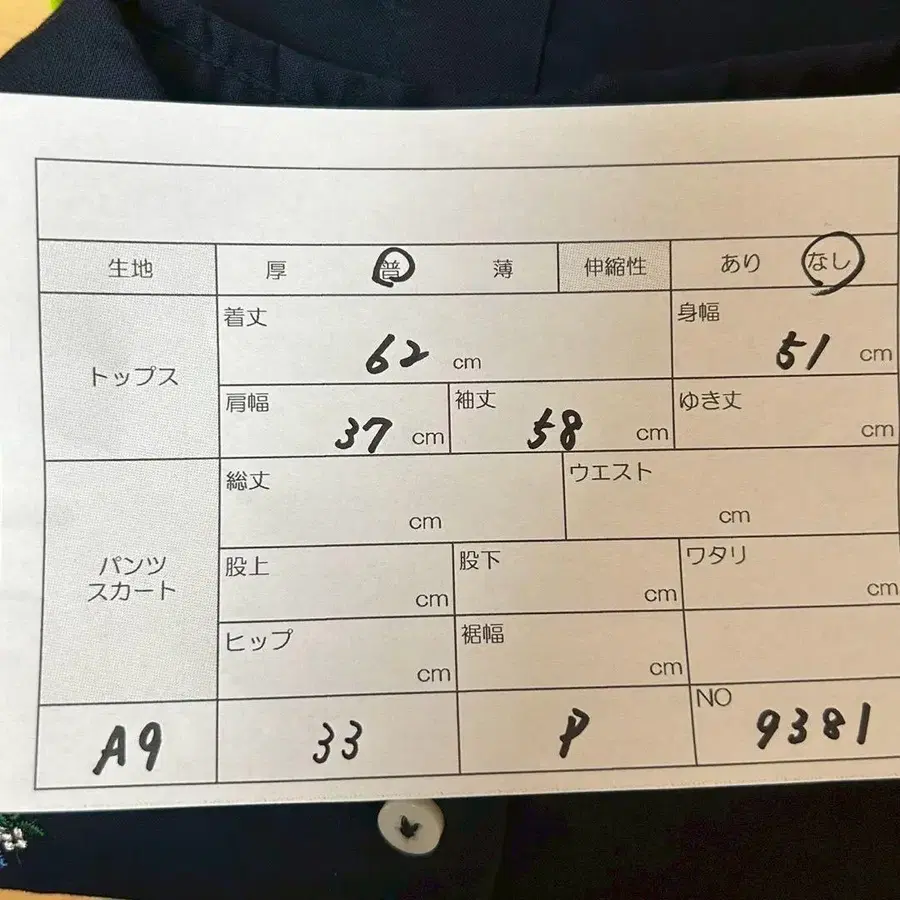 生地 厚 普 薄 伸縮性 あり なし
トップス
着丈 62 cm
身幅 51 cm
肩幅 37 cm
袖丈 58 cm
ゆき丈 cm
パンツ
スカート
総丈 cm
ウエスト cm
股上 cm
股下 cm
ワタリ cm
ヒップ cm
裾幅 cm
A9 33 P NO 9381